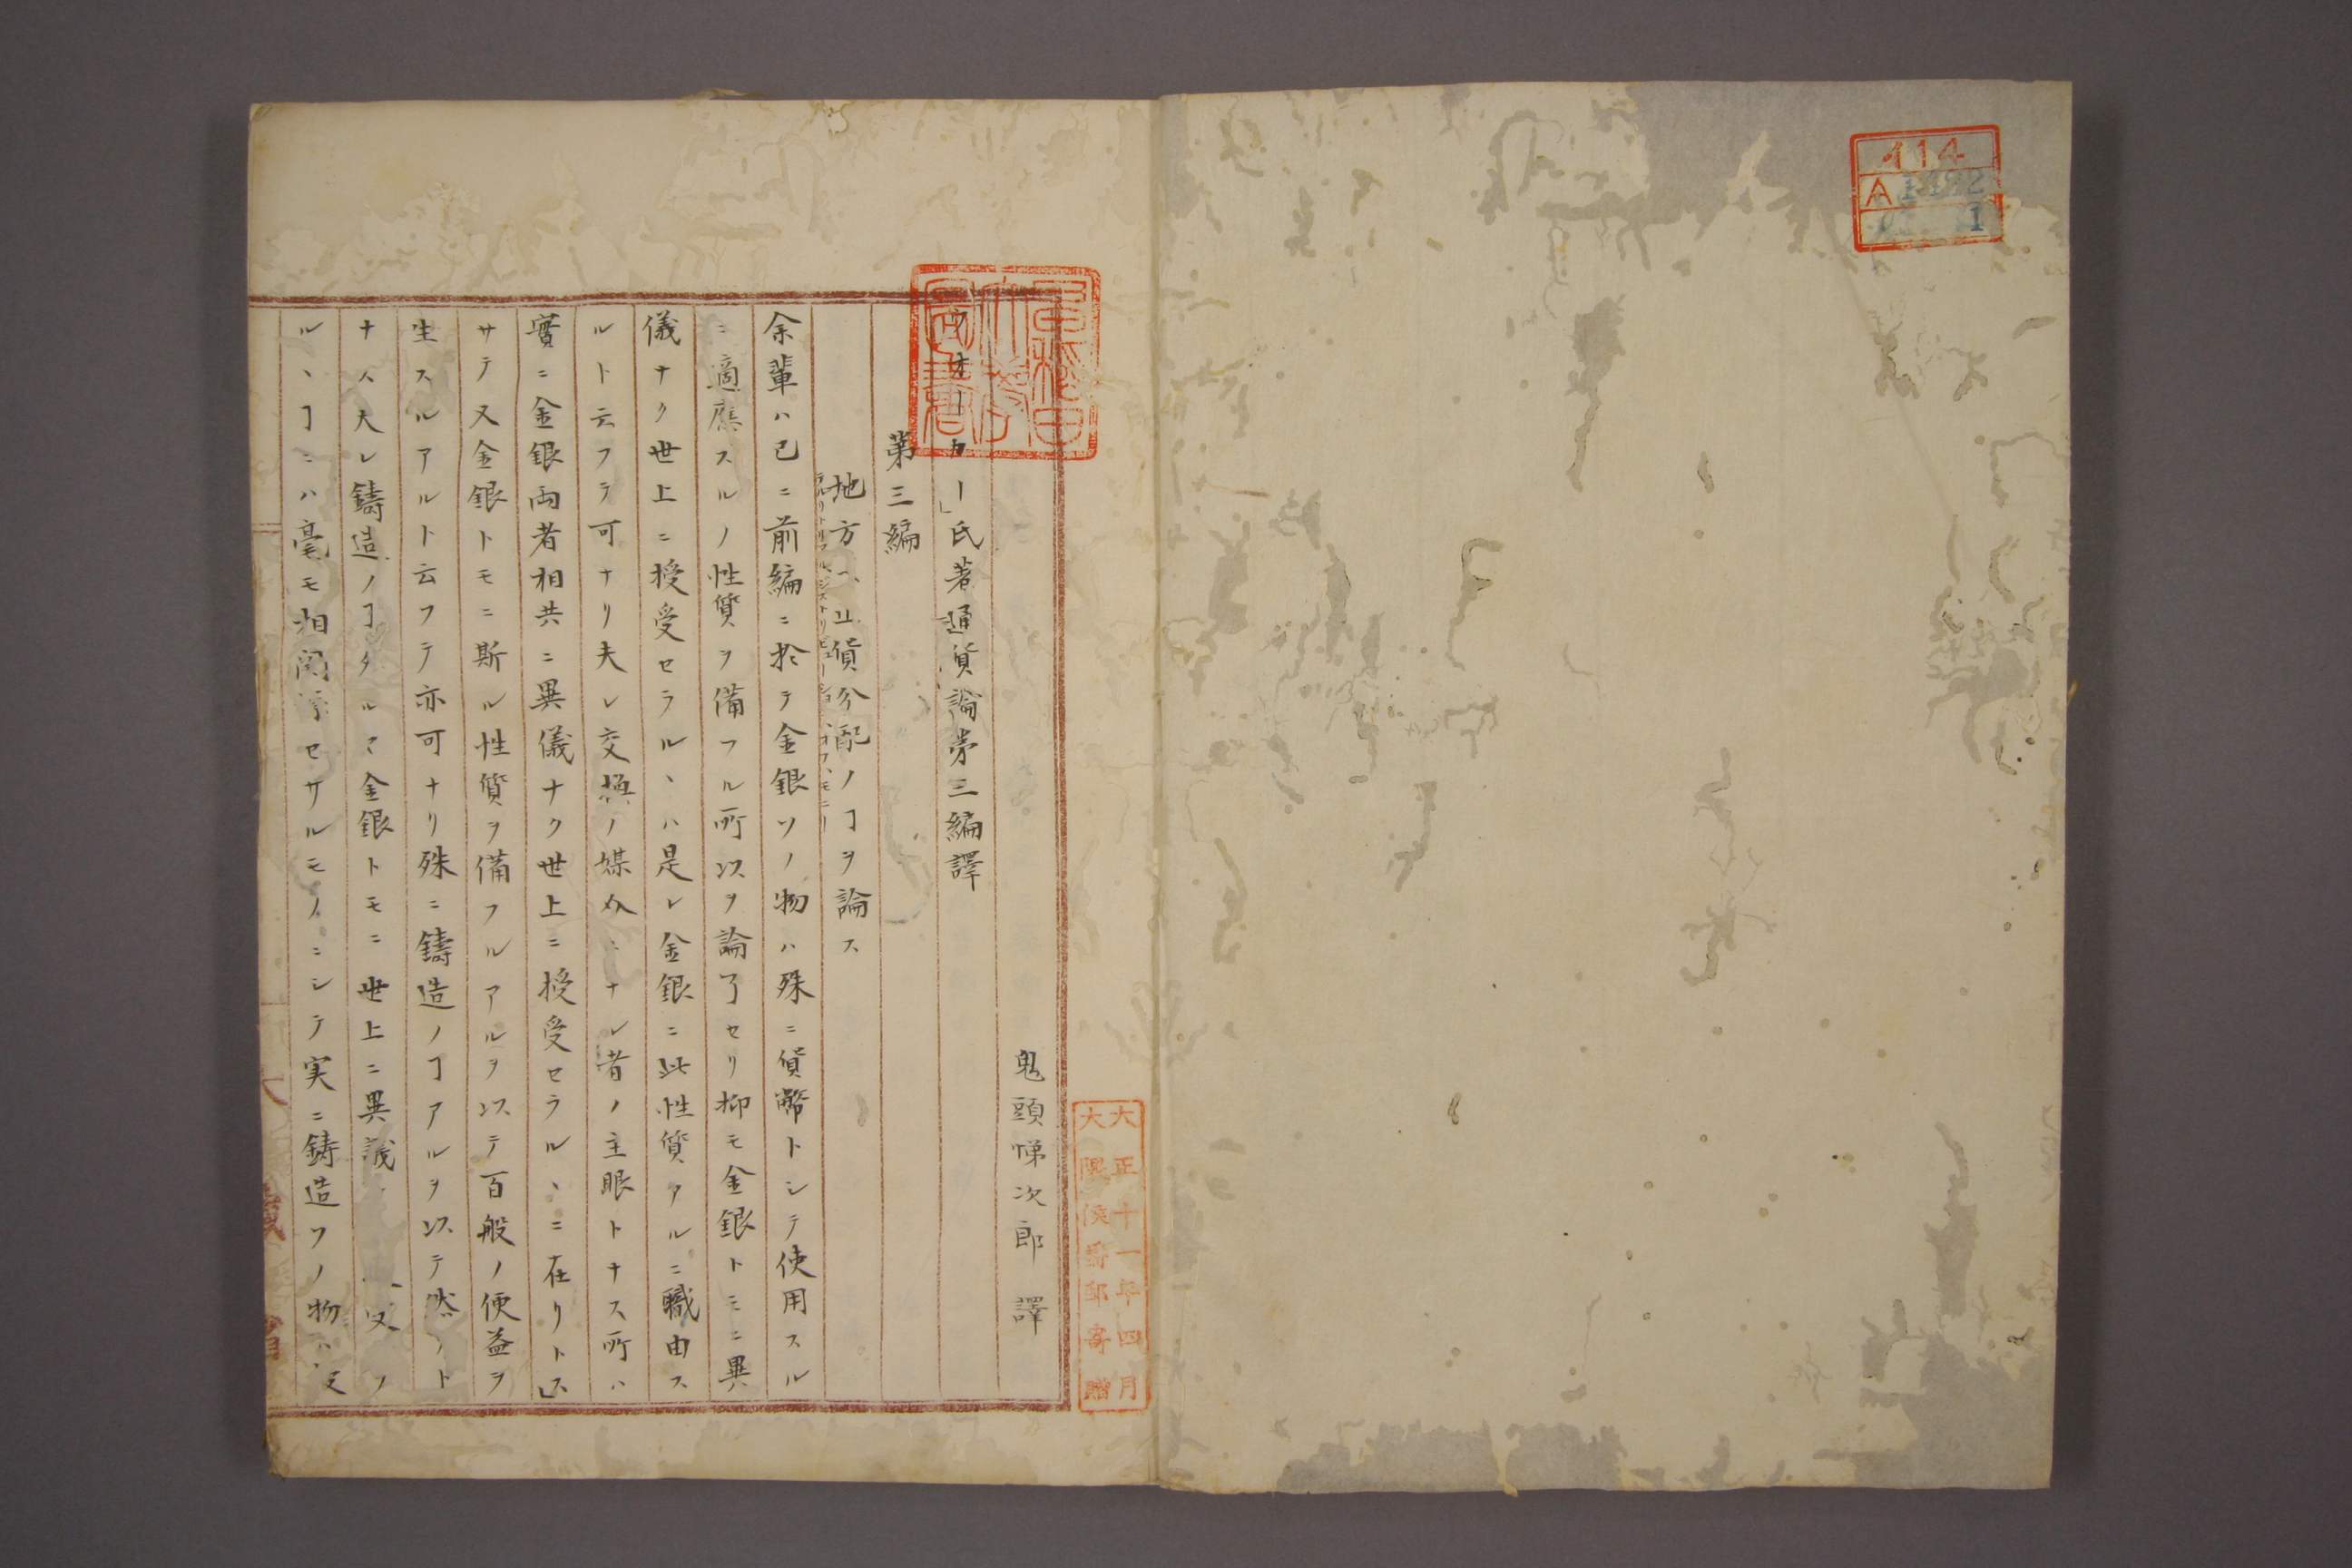 414
A 1492
1
早稲田大學圖書
大正十一年四月
大隈侯爵邸寄贈
鬼頭悌次郎 譯
ウオーカー」氏著通貨論第三編譯
第三編
地方ヘ正貨分配ノヿヲ論ス
余輩ハ已ニ前編ニ於テ金銀ソノ物ハ殊ニ貨幣トシテ使用スル
ニ適應スルノ性質ヲ備フル所以ヲ論了セリ抑モ金銀トモニ異
儀ナク世上ニ授受セラルヽハ是レ金銀ニ此性質アルニ職由ス
ルト云フテ可ナリ夫レ交換ノ媒介ニナレ者ノ主眼トナス所ハ
實ニ金銀両者相共ニ異儀ナク世上ニ授受セラルヽニ在リトス」
サテ又金銀トモニ斯ル性質ヲ備フルアルヲ以テ百般ノ便益ヲ
生スルアルト云フテ亦可ナリ殊ニ鋳造ノヿアルヲ以テ然リト
ナス夫レ鋳造ノヿタルヤ金銀トモニ世上ニ異議 受ノ
ルヽヿニハ毫モ相関渉セサルモノニシテ実ニ鋳造ソノ物ハ
大藏省